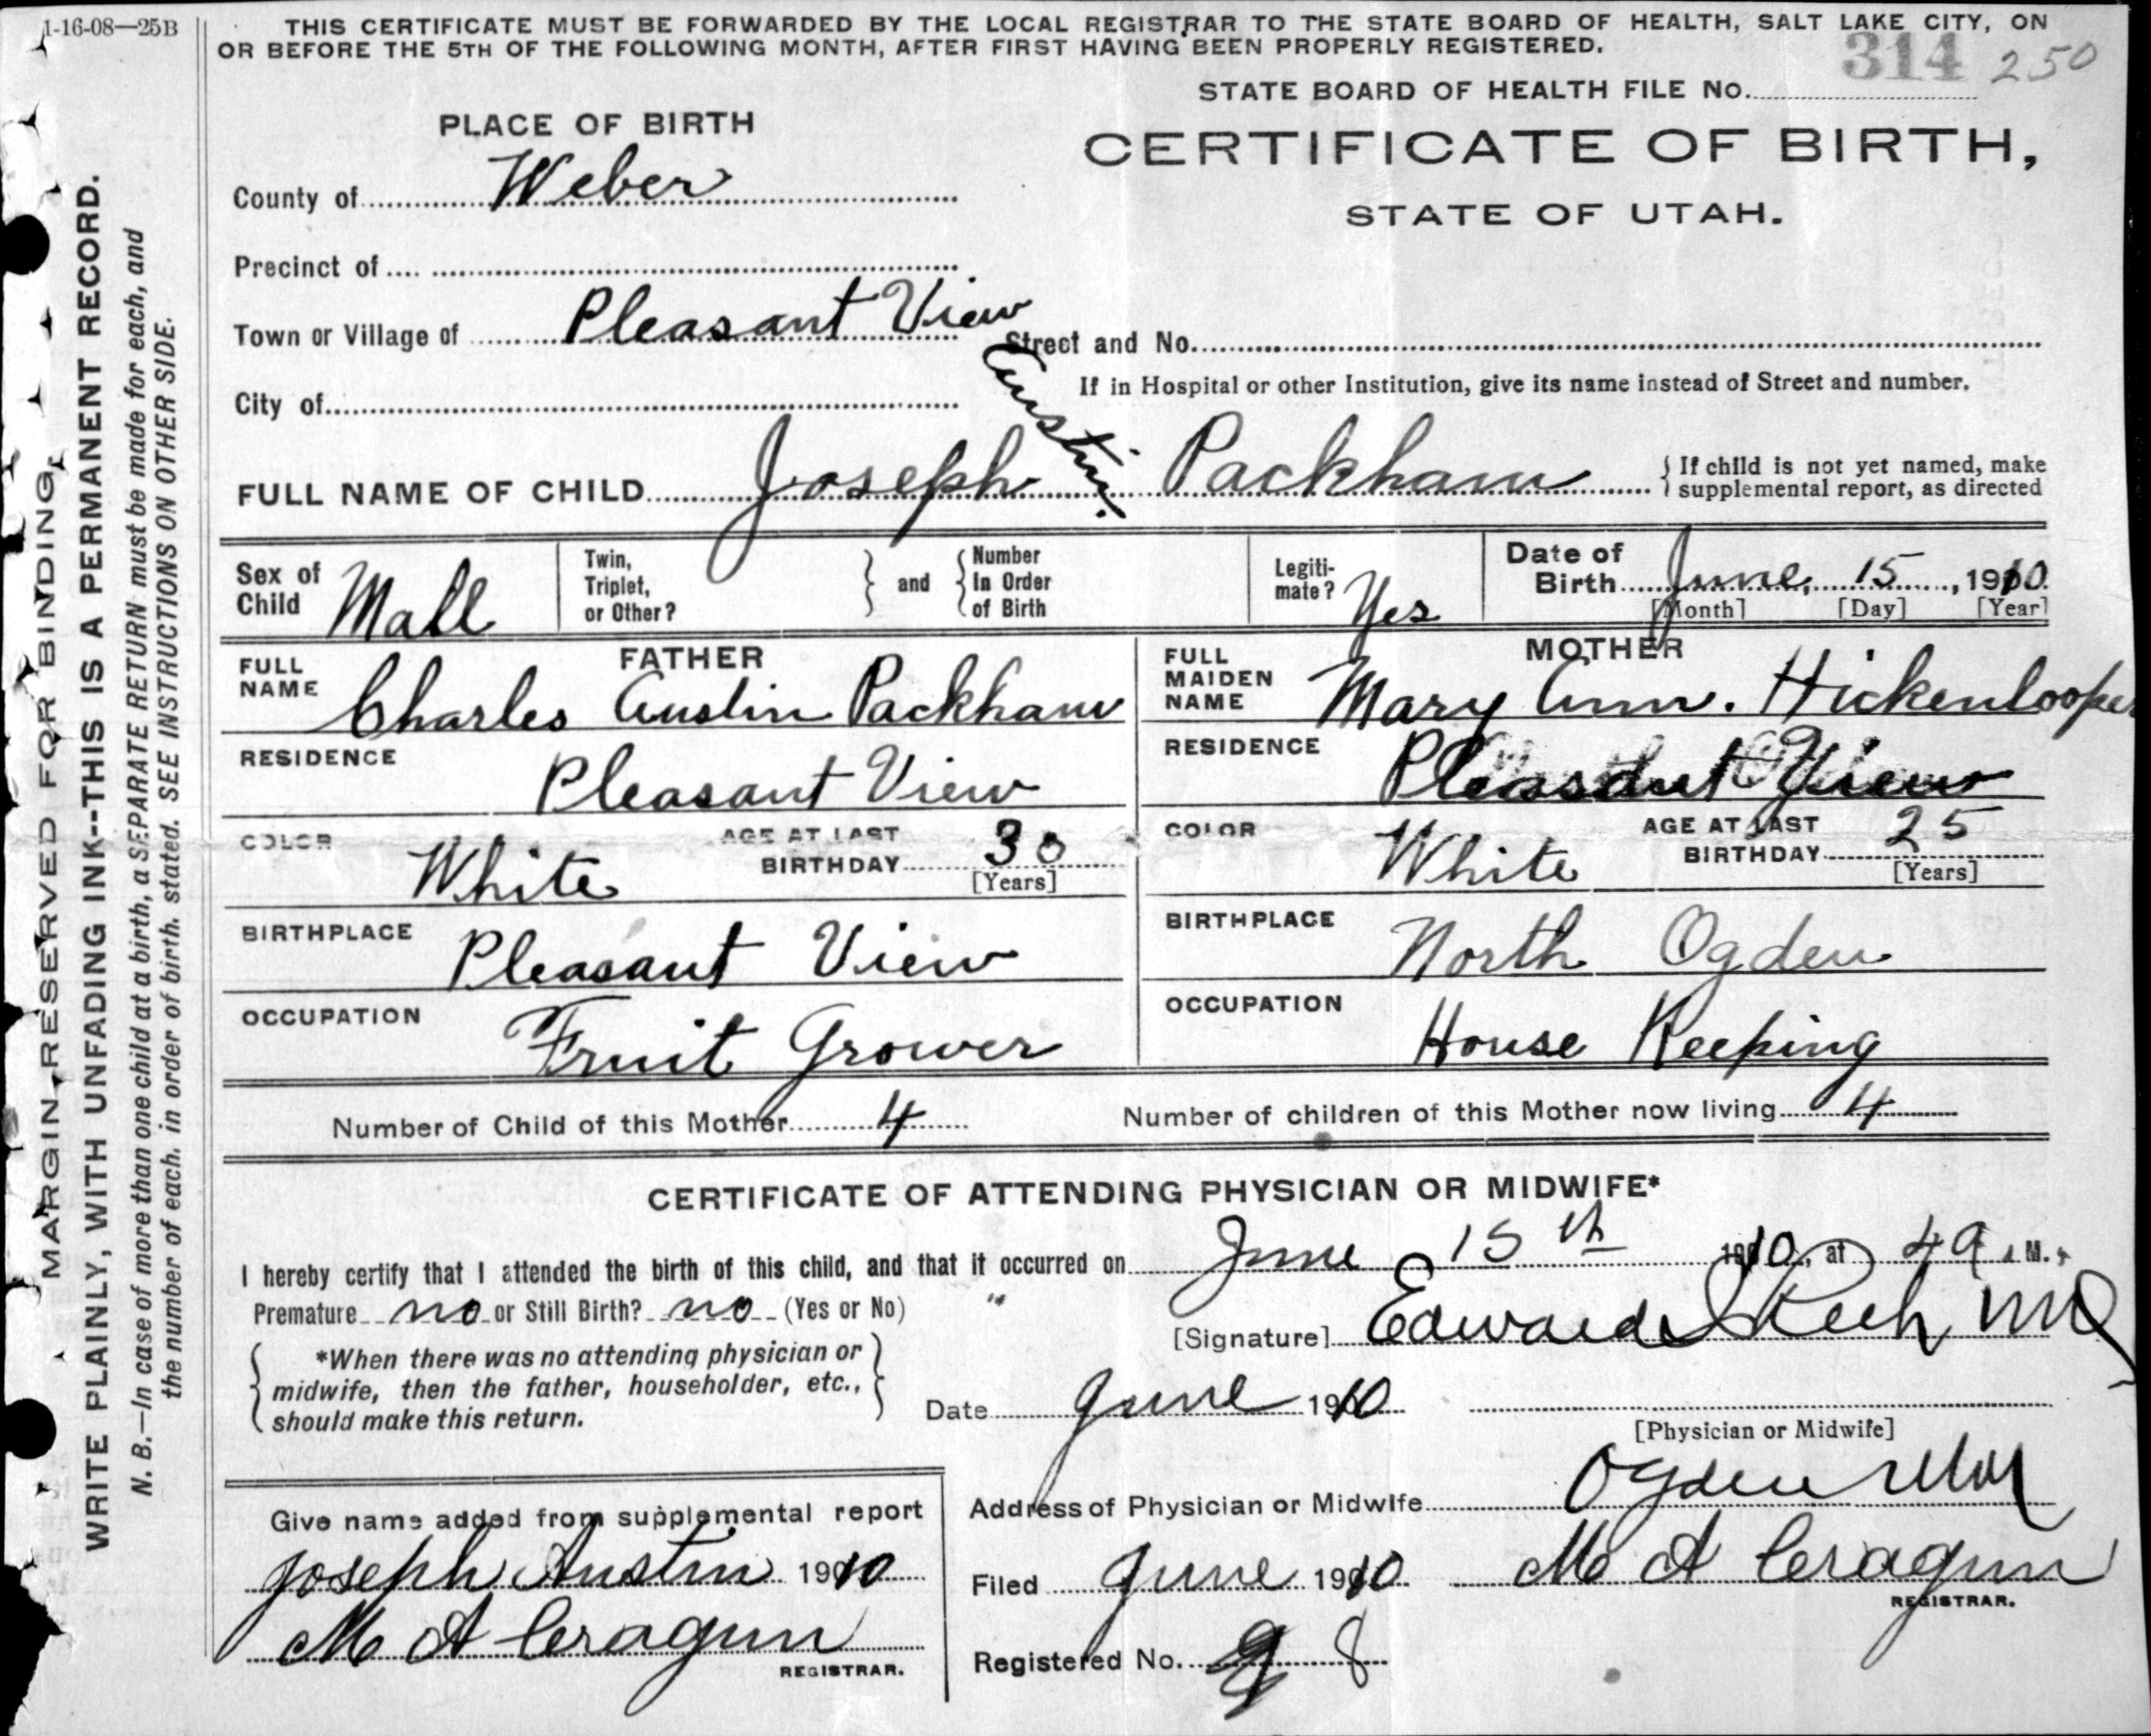 1-16-08—25B
THIS CERTIFICATE MUST BE FORWARDED BY THE LOCAL REGISTRAR TO THE STATE BOARD OF HEALTH, SALT LAKE CITY, ON
OR BEFORE THE 5TH OF THE FOLLOWING MONTH, AFTER FIRST HAVING BEEN PROPERLY REGISTERED.
314 250
STATE BOARD OF HEALTH FILE No.
PLACE OF BIRTH
CERTIFICATE OF BIRTH,
STATE OF UTAH.
County of Weber
Precinct of
Town or Village of Pleasant View
Street and No.
City of
If in Hospital or other Institution, give its name instead of Street and number.
FULL NAME OF CHILD Joseph Austin Packham
If child is not yet named, make
supplemental report, as directed
Sex of Child Male
Twin, Triplet, or Other?
and
Number In Order of Birth
Legiti-mate? Yes
Date of Birth June, 15, 1910.
[Month] [Day] [Year]
FATHER
FULL NAME Charles Austin Packham
RESIDENCE Pleasant View
COLOR White
AGE AT LAST BIRTHDAY 30
[Years]
BIRTHPLACE Pleasant View
OCCUPATION Fruit Grower
MOTHER
FULL MAIDEN NAME Mary Ann. Hickenlooper
RESIDENCE Pleasant View
COLOR White
AGE AT LAST BIRTHDAY 25
[Years]
BIRTHPLACE North Ogden
OCCUPATION House Keeping
Number of Child of this Mother 4
Number of children of this Mother now living 4
CERTIFICATE OF ATTENDING PHYSICIAN OR MIDWIFE*
I hereby certify that I attended the birth of this child, and that it occurred on June 15th 1910, at 4 a M.
Premature no or Still Birth? no (Yes or No) "
[Signature] Edward MD
*When there was no attending physician or
midwife, then the father, householder, etc.,
should make this return.
Date June 1910
[Physician or Midwife]
Address of Physician or Midwife Ogden Utah
Give name added from supplemental report
Joseph Austin 1910
M A Cragun
REGISTRAR.
Filed June 1910 M A Cragun
REGISTRAR.
Registered No. 8
MARGIN RESERVED FOR BINDING.
WRITE PLAINLY, WITH UNFADING INK--THIS IS A PERMANENT RECORD.
N. B.—In case of more than one child at a birth, a SEPARATE RETURN must be made for each, and
the number of each. in order of birth. stated. SEE INSTRUCTIONS ON OTHER SIDE.